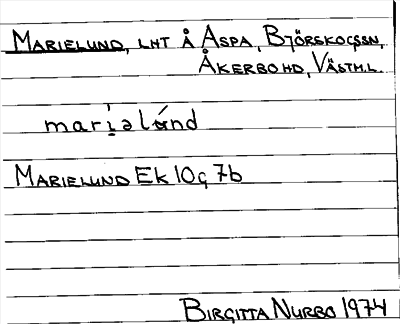 MARIELUND, LHT Å ÄSPA, BJÖRSKOGSSN,
ÅKERBOHD, VÄSTM.L.
mari̱əlɷ́nd
MARIELUND EK 10g 7b
BIRGITTA NURBO 1974